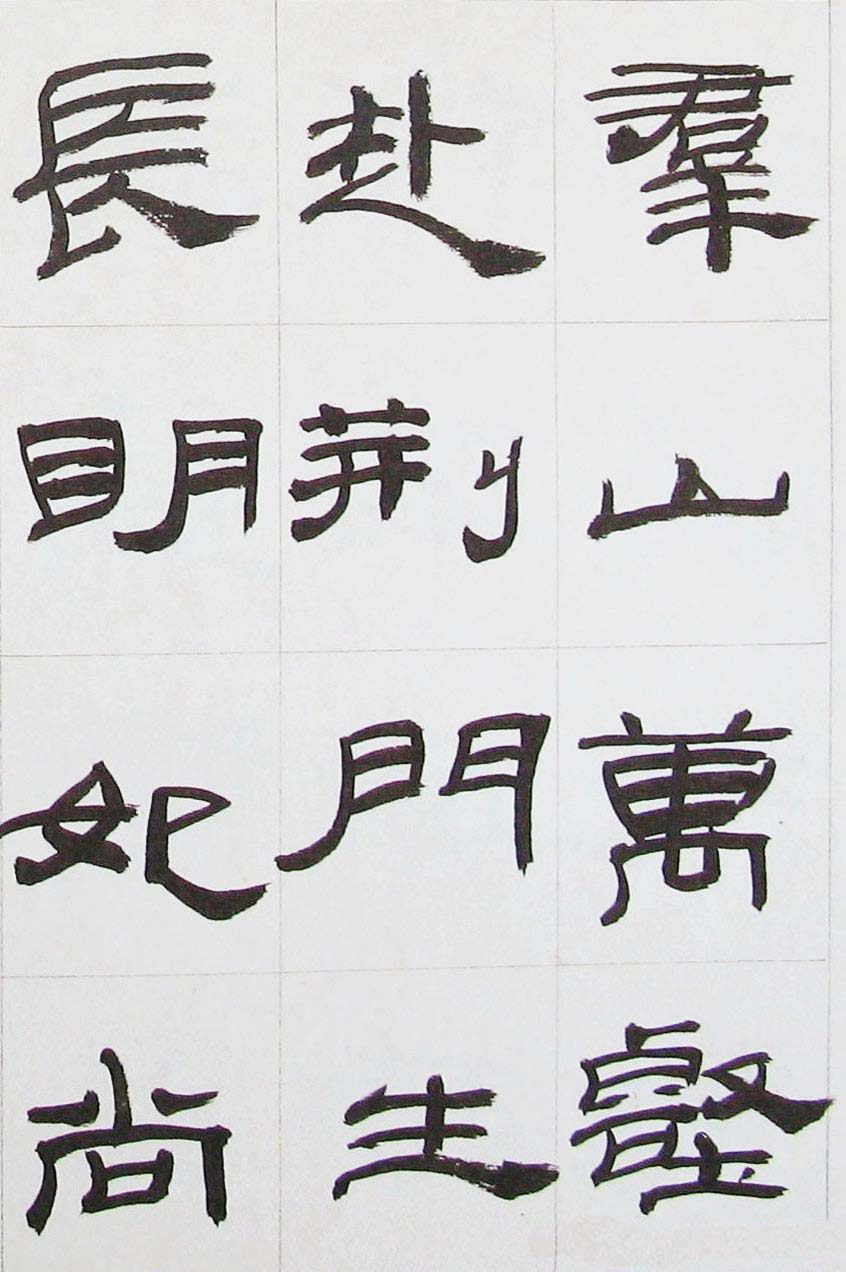 羣山萬壑
赴荆門生
長明妃尚